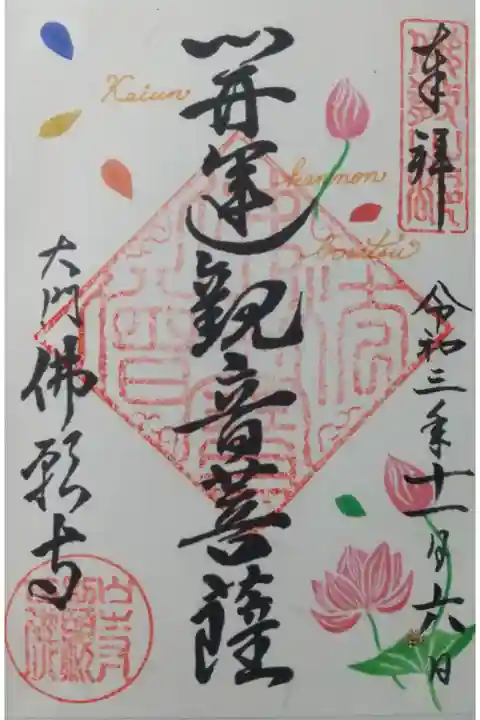 奉拝
令和三年十一月六日
開運観音菩薩
Kaiun
kannon
bosatsu
大門
佛願寺